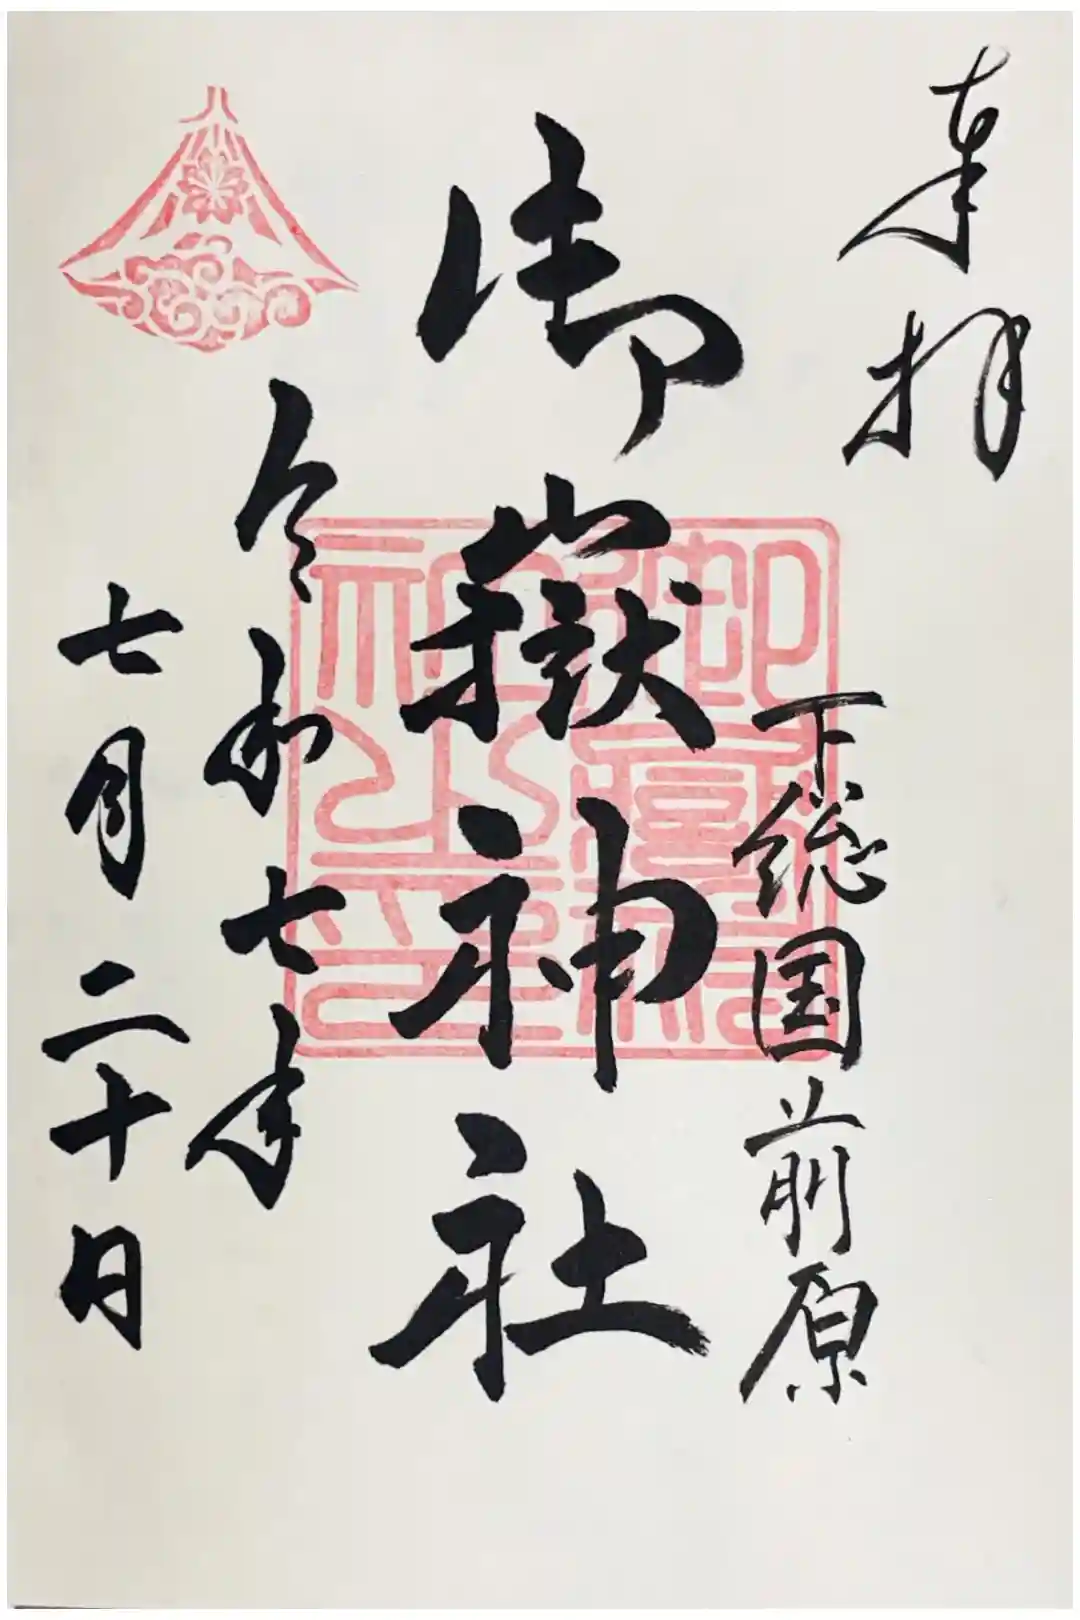 奉拝
下総国前原
御嶽神社
御嶽神社之印
令和七年
七月二十日